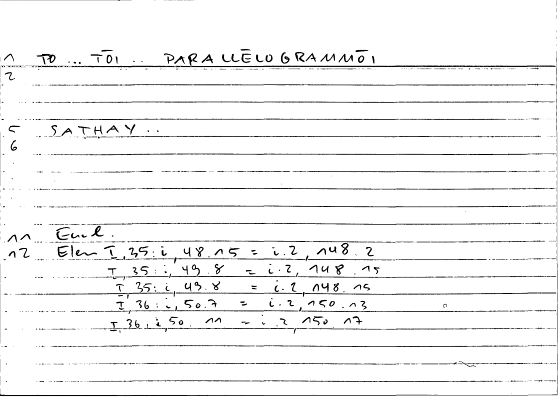 1 TO ... TŌI .. PARALLĒLOGRAMMŌI
2
5 SATHAY ..
6
11 Eucl.
12 Elem I, 35: i, 48.15 = i.2, 148.2
I, 35: i, 49.8 = i.2, 148.15
I, 35: i, 49.8 = i.2, 148.15
I, 36: i, 50.7 = i.2, 150.13
I, 36: i, 50.11 = i.2, 150.17